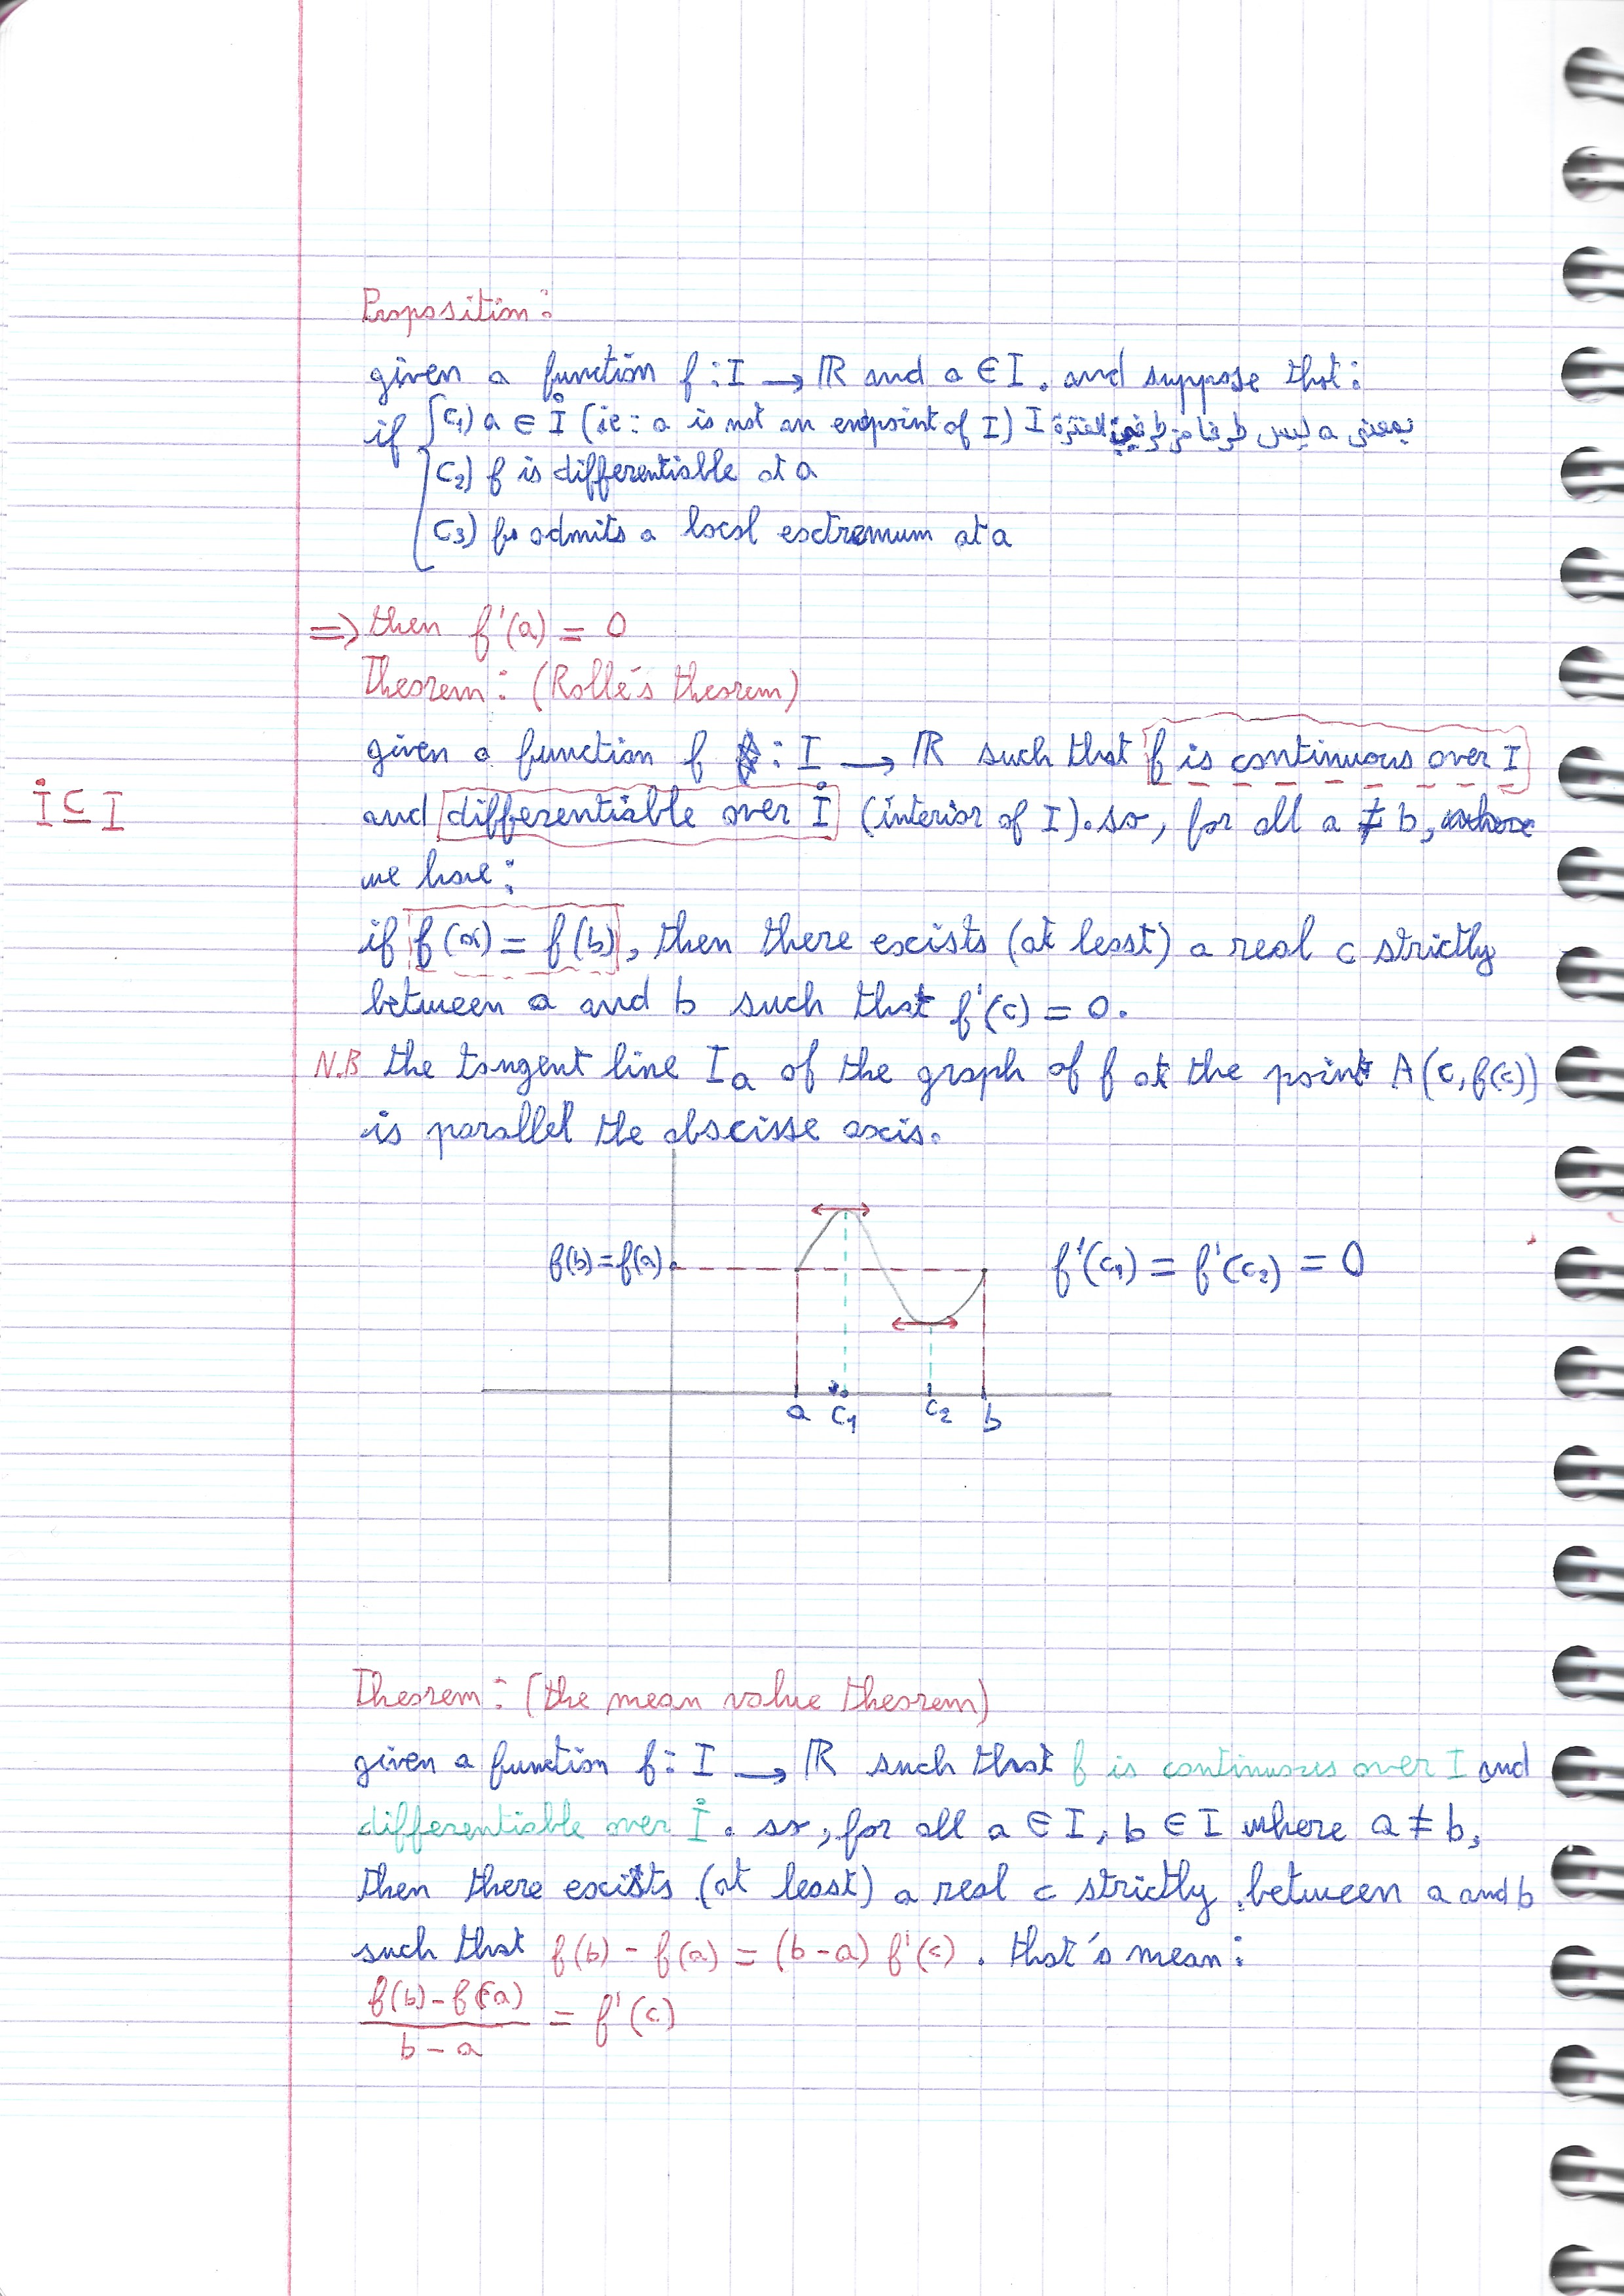 Proposition:
given a function f : I → ℝ and a ∈ I. and suppose that:
if { C₁) a ∈ I̊ (ie: a is not an endpoint of I) بمعنى a ليس طرفا من طرفي الفترة I
C₂) f is differentiable at a
C₃) f admits a local extremum at a
⇒ then f'(a) = 0
Theorem: (Rolle's theorem)
given a function f : I → ℝ such that f is continuous over I
İ ⊆ I
and differentiable over I̊ (interior of I). so, for all a ≠ b,
we have:
if f(a) = f(b), then there exists (at least) a real c strictly
between a and b such that f'(c) = 0.
N.B the tangent line Ia of the graph of f at the point A(c, f(c))
is parallel the abscisse axis.
f(b) = f(a)
f'(c₁) = f'(c₂) = 0
a c₁ c₂ b
Theorem: (the mean value theorem)
given a function f : I → ℝ such that f is continuous over I and
differentiable over I̊. so, for all a ∈ I, b ∈ I where a ≠ b,
then there exists (at least) a real c strictly between a and b
such that f(b) - f(a) = (b - a) f'(c). that's mean:
f(b) - f(a) / b - a = f'(c)